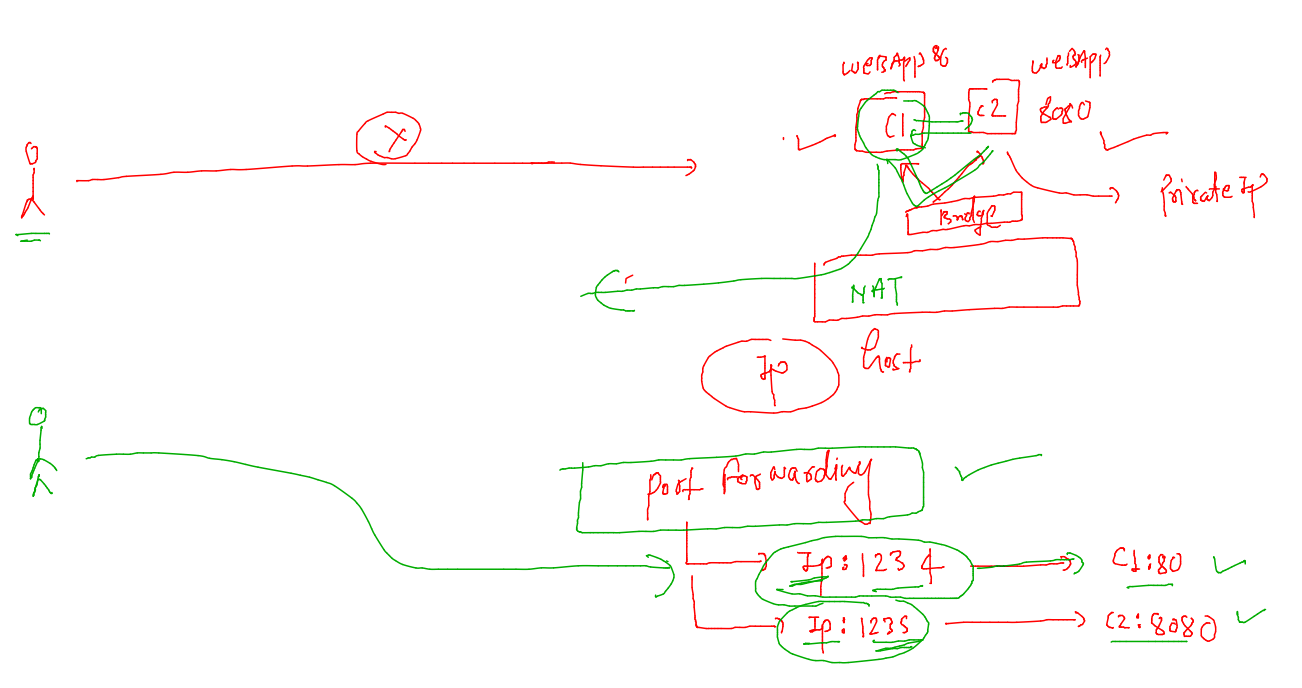 WeBApp 80
WeBApp
8080
X
C1
C2
Private Ip
Bridge
NAT
Ip
host
Port Forwarding
Ip:1234
C1:80
Ip:1235
C2:8080